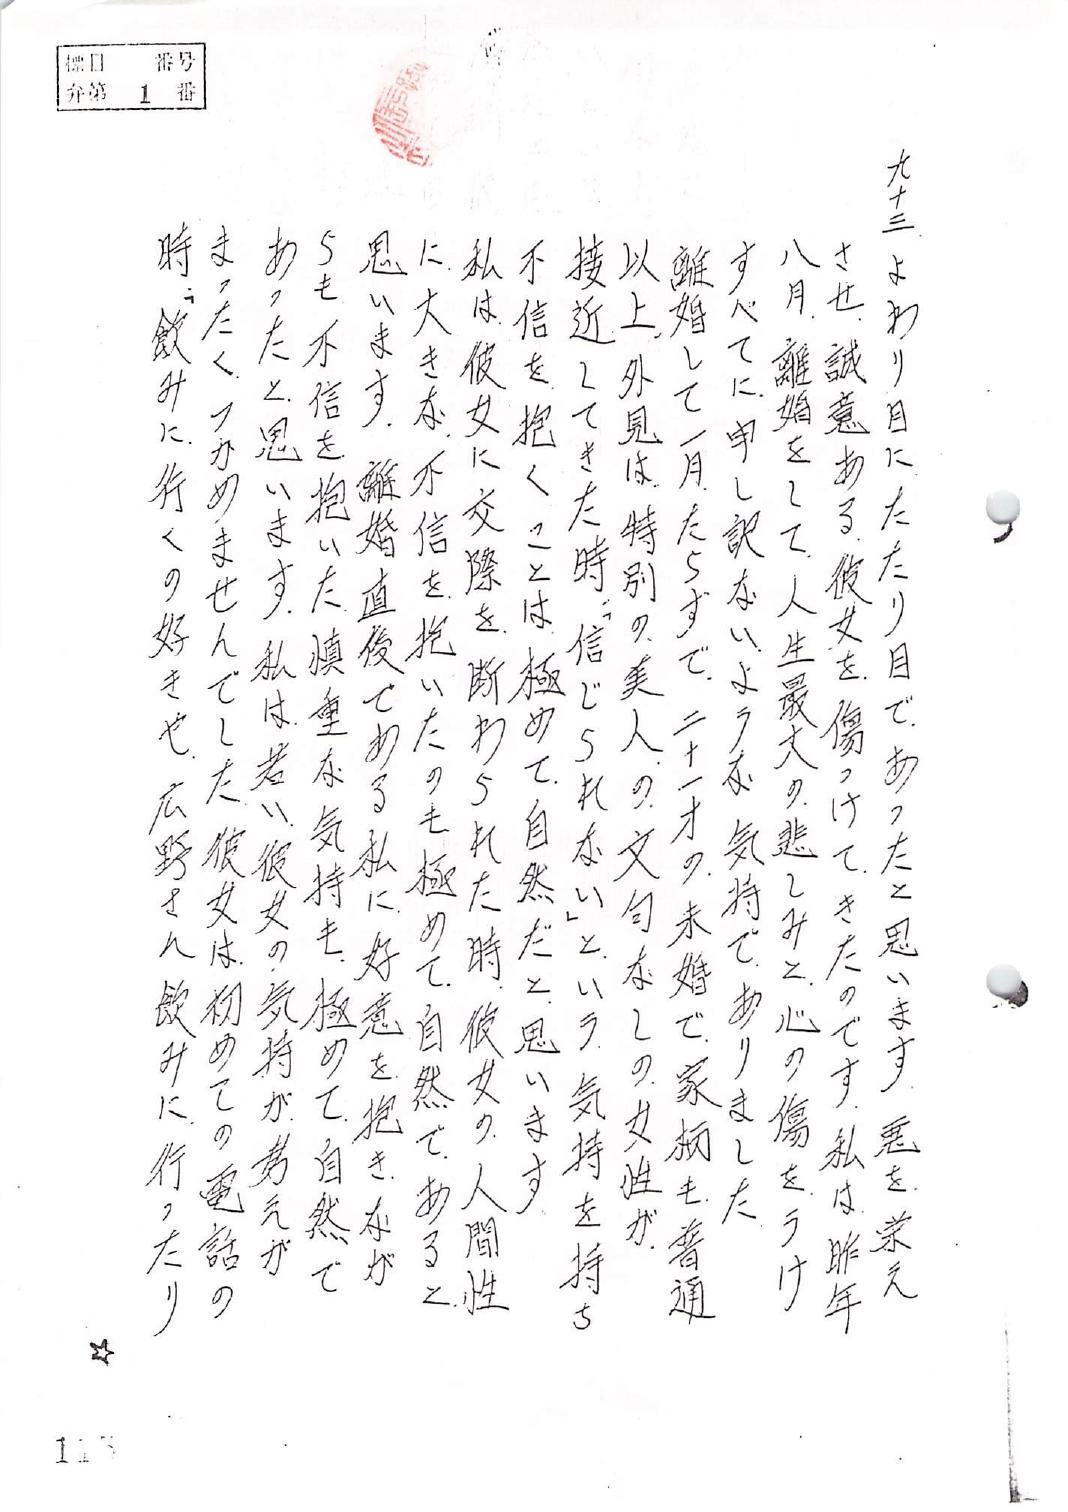 標目 番号
弁第 1 番
九十三 よわり目にたたり目で、あったと思います。悪を栄え
させ、誠意ある、彼女を、傷つけてきたのです。私は、昨年
八月、離婚をして、人生最大の悲しみと、心の傷を、うけ
すべてに、申し訳ないような、気持で、ありました。
離婚して一月たらずで、二十一才の、未婚で、家柄も、普通
以上、外見は、特別の、美人の、文句なしの、女性が、
接近してきた時、「信じられない」という、気持を、持ち
不信を、抱くことは、極めて、自然だと、思います。
私は、彼女に、交際を、断わられた時、彼女の、人間性
に、大きな、不信を、抱いたのも、極めて、自然で、あると、
思います。離婚直後である私に、好意を、抱きなが
らも、不信を、抱いた、慎重な、気持も、極めて、自然で
あったと、思います。私は、若い、彼女の、気持が、考えが
まったく、つかめませんでした。彼女は、初めての、電話の
時、「飲みに、行くの好きや、広野さん、飲みに、行ったり
☆